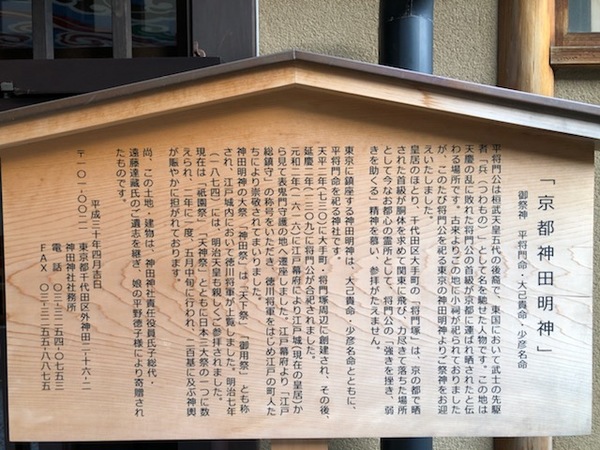 「京都神田明神」
御祭神　平将門命・大己貴命・少彦名命
平将門公は桓武天皇五代の後裔で、東国において武士の先駆
者「兵（つわもの）」として名を馳せた人物です。この地は
天慶の乱に敗れた将門公の首級が京都に運ばれ晒されたと伝
わる場所です。古来よりこの地に小祠が祀られておりました
が、このたび将門公を祀る東京の神田明神よりご祭神をお迎
えいたしました。
皇居のほとり、千代田区大手町の「将門塚」は、京の都で晒
された首級が胴体を求めて関東に飛び、力尽きて落ちた場所
として今なお都心の霊所として、将門公の「強きを挫き、弱
きを助くる」精神を慕い、参拝がたえません。
東京に鎮座する神田明神は、大己貴命・少彦名命とともに、
平将門命を祀る神社です。
天平二年（七三〇）に大手町・将門塚周辺に創建され、その後、
延慶二年（一三〇九）に将門公が合祀されました。
元和二年（一六一六）に江戸幕府により江戸城（現在の皇居）か
ら見て表鬼門守護の地へ遷座しました。江戸幕府より「江戸
総鎮守」の称号をいただき、徳川将軍をはじめ江戸の町人た
ちにより崇敬されてまいりました。
神田明神の大祭「神田祭」は「天下祭」「御用祭」とも称
され、江戸城内において徳川将軍が上覧しました。明治七年
（一八七四）には、明治天皇も親しくご参拝されました。
現在は「祇園祭」「天神祭」とともに日本三大祭の一つに数
えられ、二年に一度、五月中旬に行われ、二百基に及ぶ神輿
が賑やかに担がれております。
尚、この土地・建物は、神田神社責任役員氏子総代・
遠藤達藏氏のご遺志を継ぎ、娘の平野德子様により寄贈され
たものです。
平成三十年四月吉日
〒一〇一-〇〇二一　東京都千代田区外神田二-十六-二
神田神社社務所
電話　〇三-三二五四-〇七五三
ＦＡＸ　〇三-三二五五-八八七五